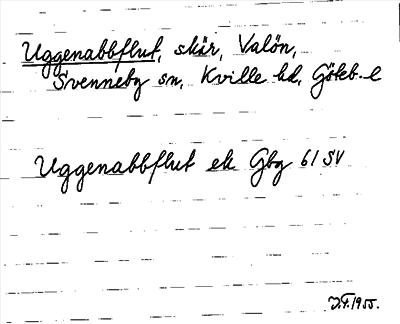 Uggenabbflut, skär, Valön,
Svenneby sn, Kville hd, Göteb. l
Uggenabbflut ek Gbg 61 SV
J.F. 1955.